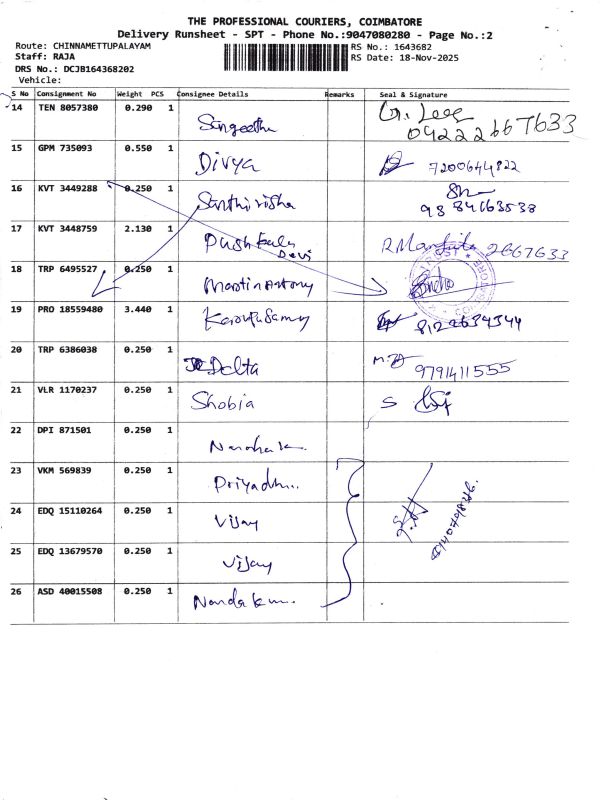 THE PROFESSIONAL COURIERS, COIMBATORE
Delivery Runsheet - SPT - Phone No.:9047080280 - Page No.:2
Route: CHINNAMETTUPALAYAM RS No.: 1643682
Staff: RAJA RS Date: 18-Nov-2025
DRS No.: DCJB164368202
Vehicle:
S No Consignment No Weight PCS Consignee Details Remarks Seal & Signature
14 TEN 8057380 0.290 1 Sangeetha
04222667633
15 GPM 735093 0.550 1 Divya 7200644822
16 KVT 3449288 0.250 1
17 KVT 3448759 2.130 1 Pushkala Devi 2667633
18 TRP 6495527 0.250 1 Martin Antony
19 PRO 18559480 3.440 1 Karuppusamy 8122634344
20 TRP 6386038 0.250 1 Delta 9791411555
21 VLR 1170237 0.250 1 Shobia S
22 DPI 871501 0.250 1
23 VKM 569839 0.250 1
24 EDQ 15110264 0.250 1 Vijay
25 EDQ 13679570 0.250 1 Vijay
26 ASD 40015508 0.250 1